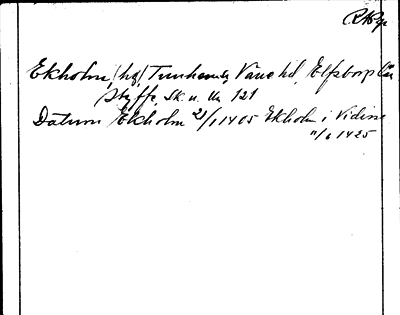 Ekholm, (hg) Tunhems, Väne hd, Elfsborgs län
Styffe, Sk. u. Un 121
Datum Ekholm 21/1 1405 Ekholm i Vidinse
11/6 1425